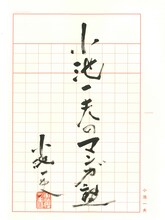 小池一夫のマンガ塾
小池一夫